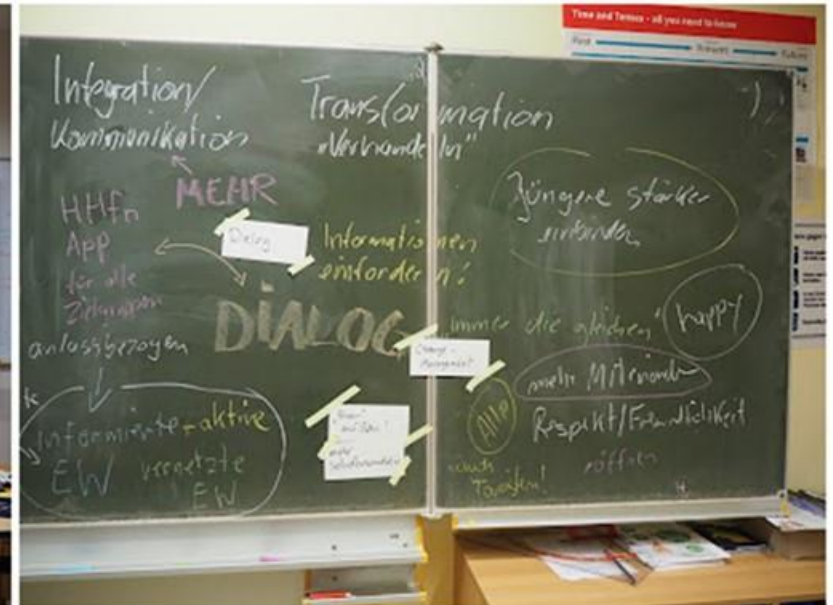 Time and Tenses - all you need to know
Past
Present
Future
Integration/
Kommunikation
MEHR
HHfn
App
für alle
Zielgruppen
anlassbezogen
Informierte + aktive
EW vernetzte
EW
Transformation
"Verhandeln"
Dialog
Informationen
einfordern!
DIALOG
Change-
Management
mehr
Jüngere stärker
einbinden
"immer die gleichen"
happy
mehr Miteinander
Alle
Respekt/Freundlichkeit
öffnen
auch